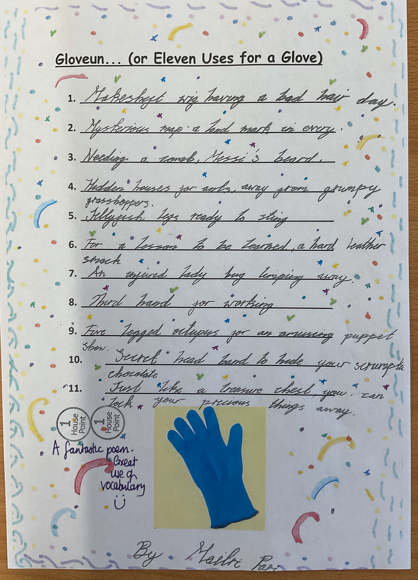 Gloveun... (or Eleven Uses for a Glove)
1. Makeshift wig having a bad hair day.
2. Mysterious map a hand mark in every.
3. Needing a comb, Messi's beard.
4. Hidden houses for ants, away from grumpy
grasshoppers.
5. Jellyfish legs ready to sting
6. For a lesson to be learned, a hard leather
smack
7. An injured lady bug limping away.
8. Third hand for working
9. Five legged octopus for an amusing puppet
show.
10. Secret hand to hide your scrumptious
chocolate
11. Just like a treasure chest you can
lock your precious things away.
1 House Point
1 House Point
A fantastic poem -
Great
use of
vocabulary
By